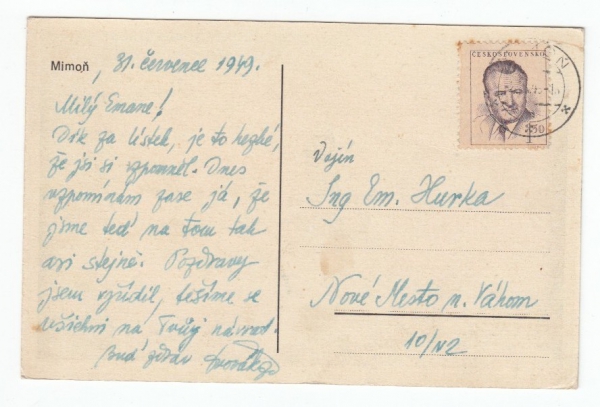 Mimoň
, 31. červenec 1949.
Milý Emane!
Dík za lístek, je to hezké,
že jsi si vzpomněl. Dnes
vzpomínám zase já, že
jsme teď na tom tak
asi stejně. Pozdravy
jsem vyřídil, těšíme se
všichni na Tvůj návrat.
Buď zdráv
ČESKOSLOVENSKO
1
Vojín
Ing Em. Hurka
Nové Mesto n. Váhom
10/N2